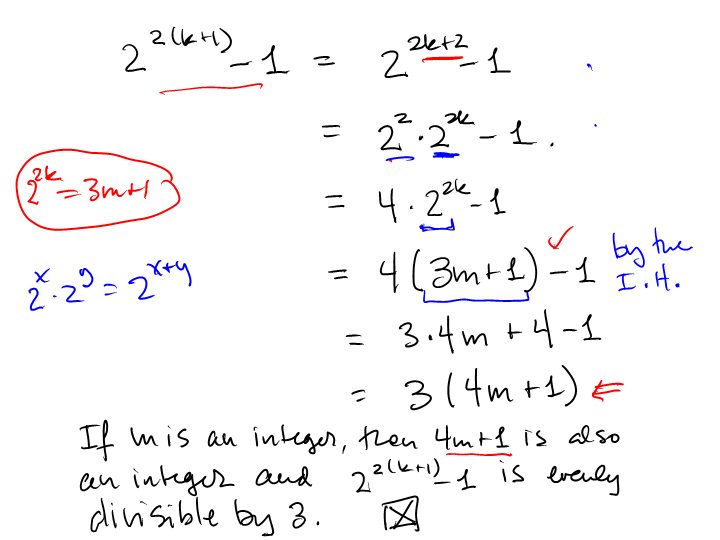 2^{2(k+1)} - 1 = 2^{2k+2} - 1
= 2^2 · 2^{2k} - 1.
2^{2k} = 3m+1
= 4 · 2^{2k} - 1
= 4(3m+1) ✓ - 1 by the I.H.
2^x · 2^y = 2^{x+y}
= 3·4m + 4 - 1
= 3(4m+1) ⇐
If m is an integer, then 4m+1 is also
an integer and 2^{2(k+1)} - 1 is evenly
divisible by 3. ☒